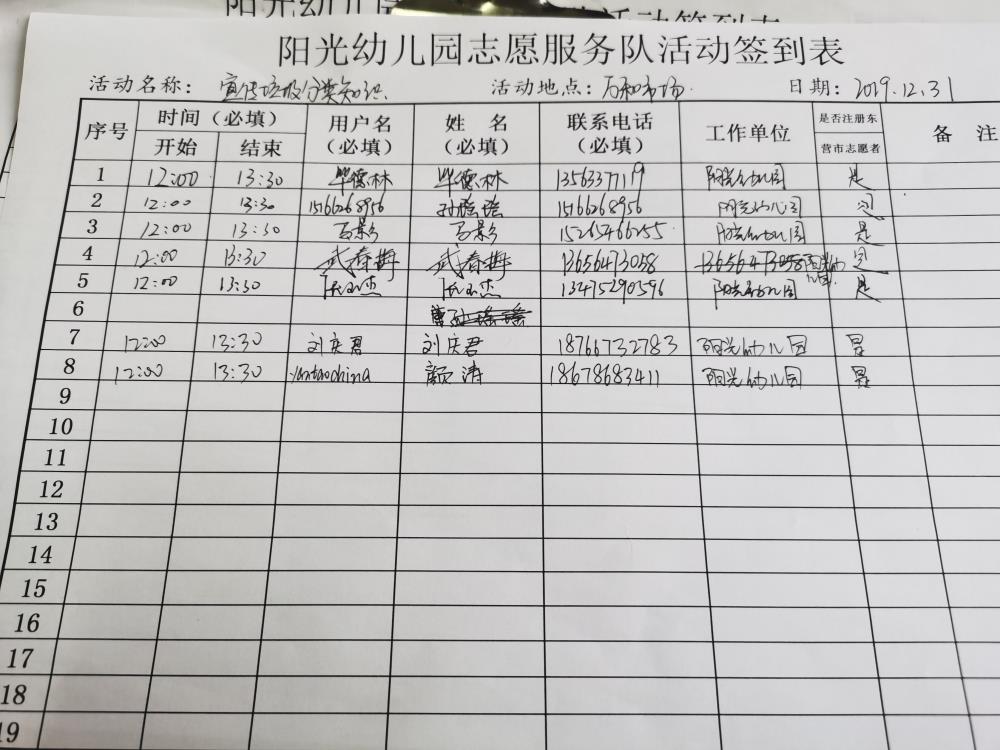 阳光幼儿园志愿服务队活动签到表
活动名称：宣传垃圾分类知识 活动地点：万和市场 日期：2019.12.31
序号 时间（必填） 用户名（必填） 姓名（必填） 联系电话（必填） 工作单位 是否注册东营市志愿者 备注
开始 结束
1 12:00 13:30 毕德林 毕德林 13563377119 阳光幼儿园 是
2 12:00 13:30 15166268956 15166268956 阳光幼儿园 是
3 12:00 13:30 马影 马影 15265466255 阳光幼儿园 是
4 12:00 13:30 武春梅 武春梅 13656473058 13656473058 阳光幼儿园 是
5 12:00 13:30 13475290596 阳光幼儿园 是
6
7 12:00 13:30 刘庆君 刘庆君 18766732783 阳光幼儿园 是
8 12:00 13:30 yantaochina 颜涛 18678683411 阳光幼儿园 是
9
10
11
12
13
14
15
16
17
18
19